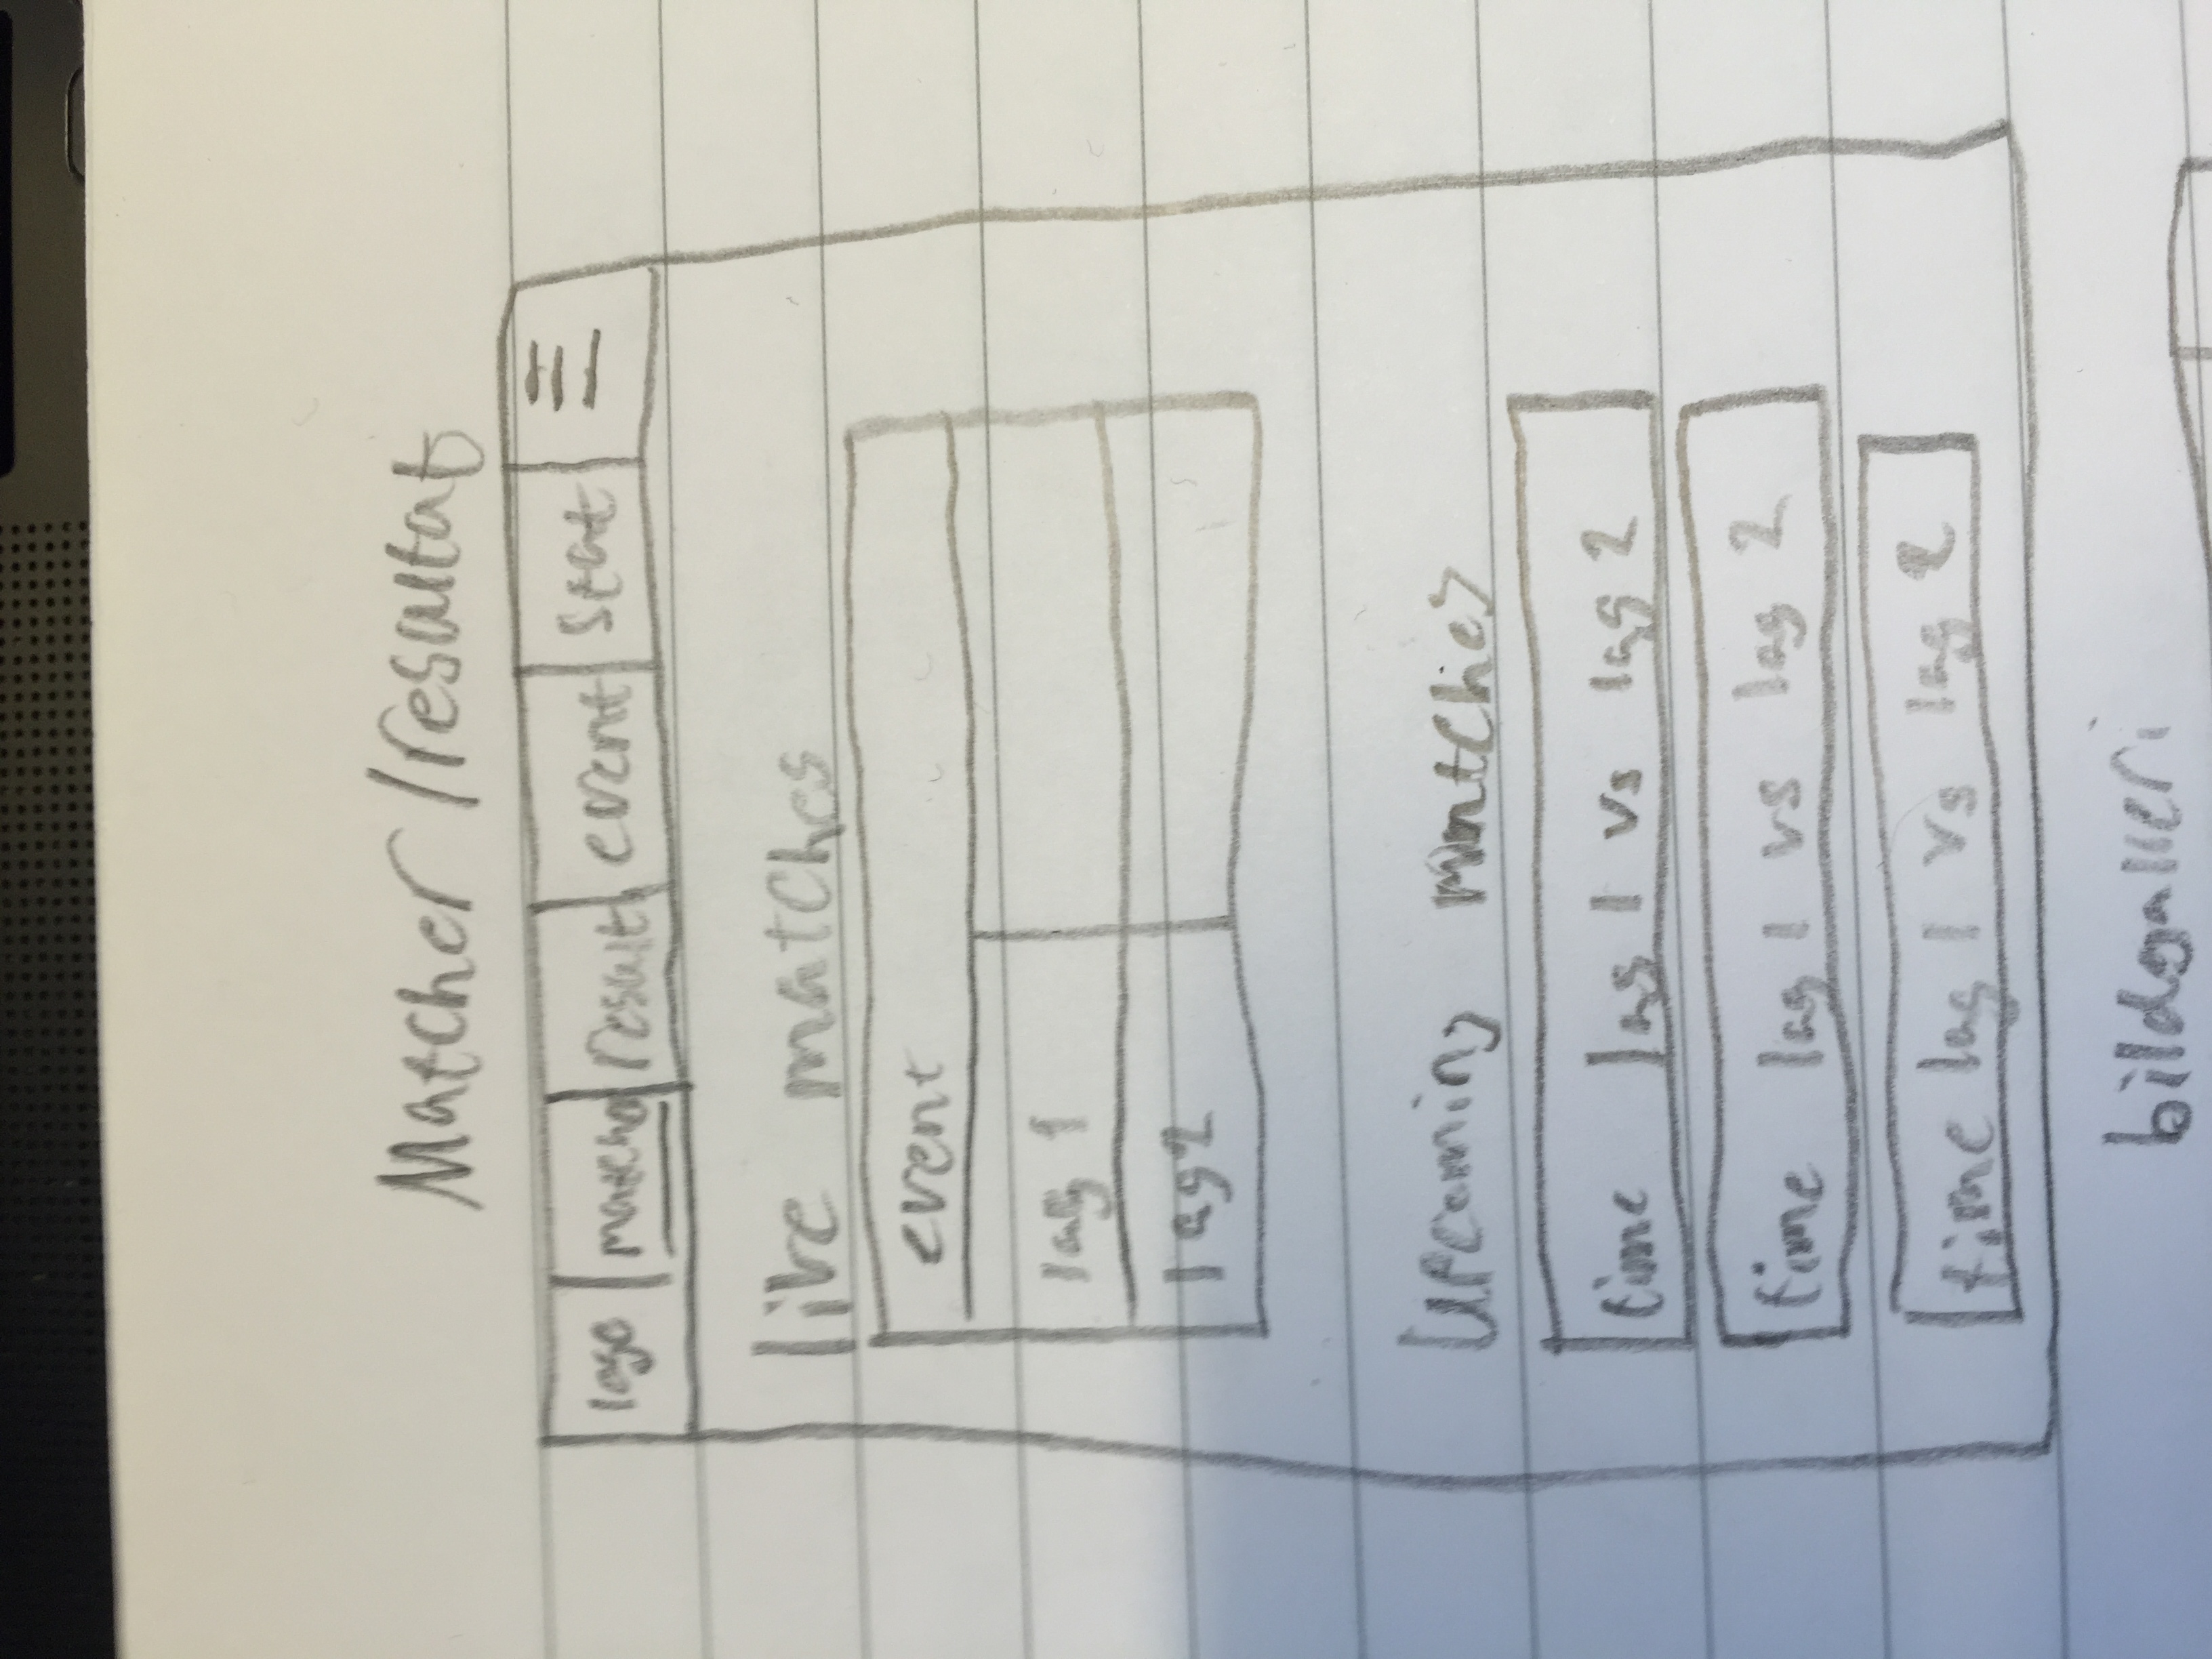 Matcher /resultat
logo matcher result event stat
live matches
event
lag 1
lag 2
Upcoming matches
time lag 1 vs lag 2
time lag 1 vs lag 2
time lag 1 vs lag 2
bildgalleri